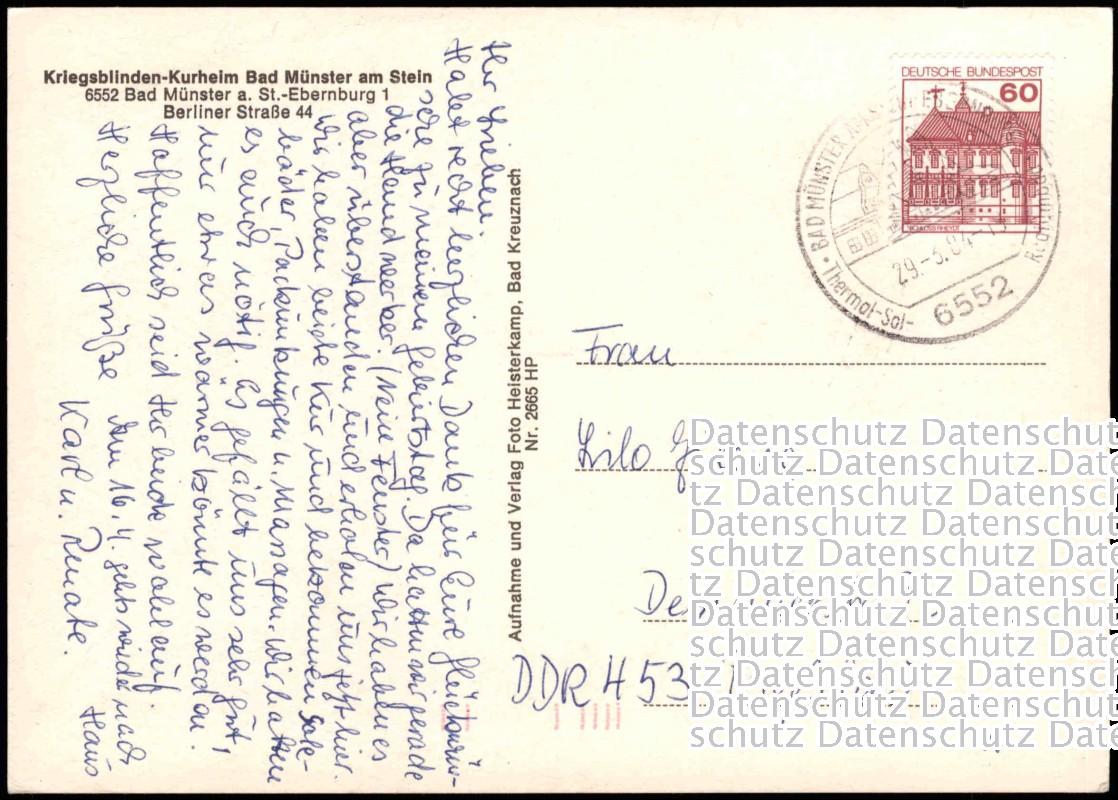 Kriegsblinden-Kurheim Bad Münster am Stein
6552 Bad Münster a. St.-Ebernburg 1
Berliner Straße 44
Ihr Lieben.
Habt recht herzlichen Dank für Eure Glückwün-
sche zu meinem Geburtstag. Da hatten wir gerade
die Handwerker. (Neue Fenster) Wir haben es
aber überstanden und erholen uns jetzt hier.
Wir haben beide Kur und bekommen Sole-
bäder, Packungen u. Massagen. Wir hatten
es auch nötig. Es gefällt uns sehr gut,
nur etwas wärmer könnte es werden.
Hoffentlich seid Ihr beide wohlauf.
Am 16.4. gehts wieder nach Haus
Herzliche Grüße
Karl u. Renate.
Aufnahme und Verlag Foto Heisterkamp, Bad Kreuznach
Nr. 2665 HP
DEUTSCHE BUNDESPOST
60
SCHLOSS RHEYDT
BAD MÜNSTER AM STEIN-EBERNBURG
29.-3.84-15
6552
Thermal-Sol-
Frau
Lilo
DDR 453
Datenschutz Datenschut
schutz Datenschutz Da
tz Datenschutz Datens
Datenschutz Datenschut
schutz Datenschutz Da
tz Datenschutz Datens
Datenschutz Datenschut
schutz Datenschutz Da
tz Datenschutz Datens
Datenschutz Datenschut
schutz Datenschutz Da